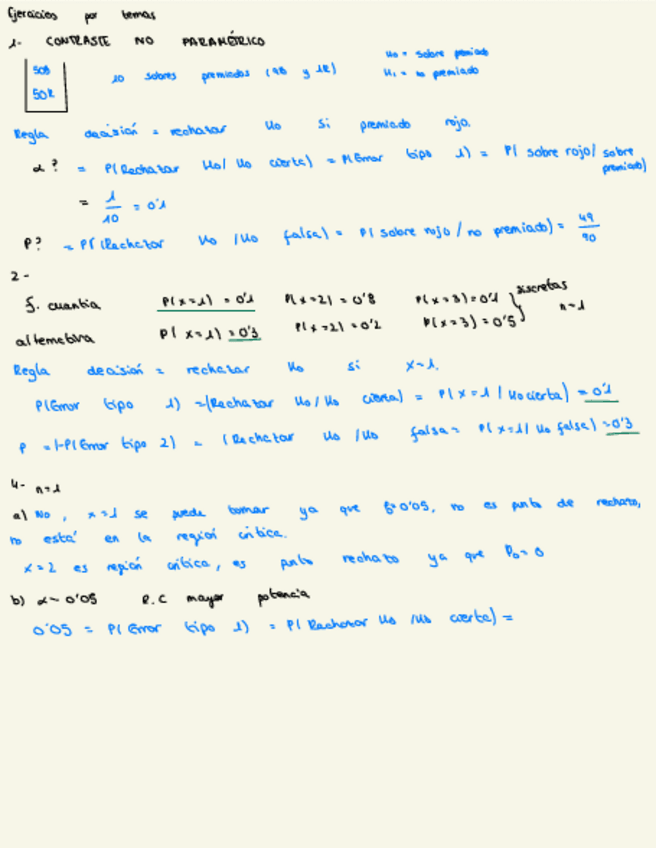 Ejercicios por temas
1- CONTRASTE NO PARAMÉTRICO
50B
50R
10 sobres premiados (9B y 1R)
H0 = sobre premiado
H1 = no premiado
Regla decisión = rechazar H0 si premiado rojo.
α? = P(Rechazar H0/ H0 cierta) = P(Error tipo 1) = P( sobre rojo/ sobre premiado)
= 1/10 = 0'1
P? = P(Rechazar H0 / H0 falsa) = P( sobre rojo / no premiado) = 49/90
2-
f. cuantia P(x=1) = 0'1 P(x=2) = 0'8 P(x=3) = 0'1 discretas
alternativa P(x=1) = 0'3 P(x=2) = 0'2 P(x=3) = 0'5 n=1
Regla decisión = rechazar H0 si x=1.
P(Error tipo 1) = (Rechazar H0/H0 cierta) = P(x=1 / H0 cierta) = 0'1
P = 1-P(Error tipo 2) = (Rechazar H0 /H0 falsa = P(x=1/ H0 falsa) = 0'3
4- n=1
a) No, x=1 se puede tomar ya que 0'05, no es punto de rechazo,
no está en la región crítica.
x=2 es región crítica, es punto rechazo ya que P0=0
b) α~0'05 R.C mayor potencia
0'05 = P(Error tipo 1) = P( Rechazar H0 /H0 cierta) =